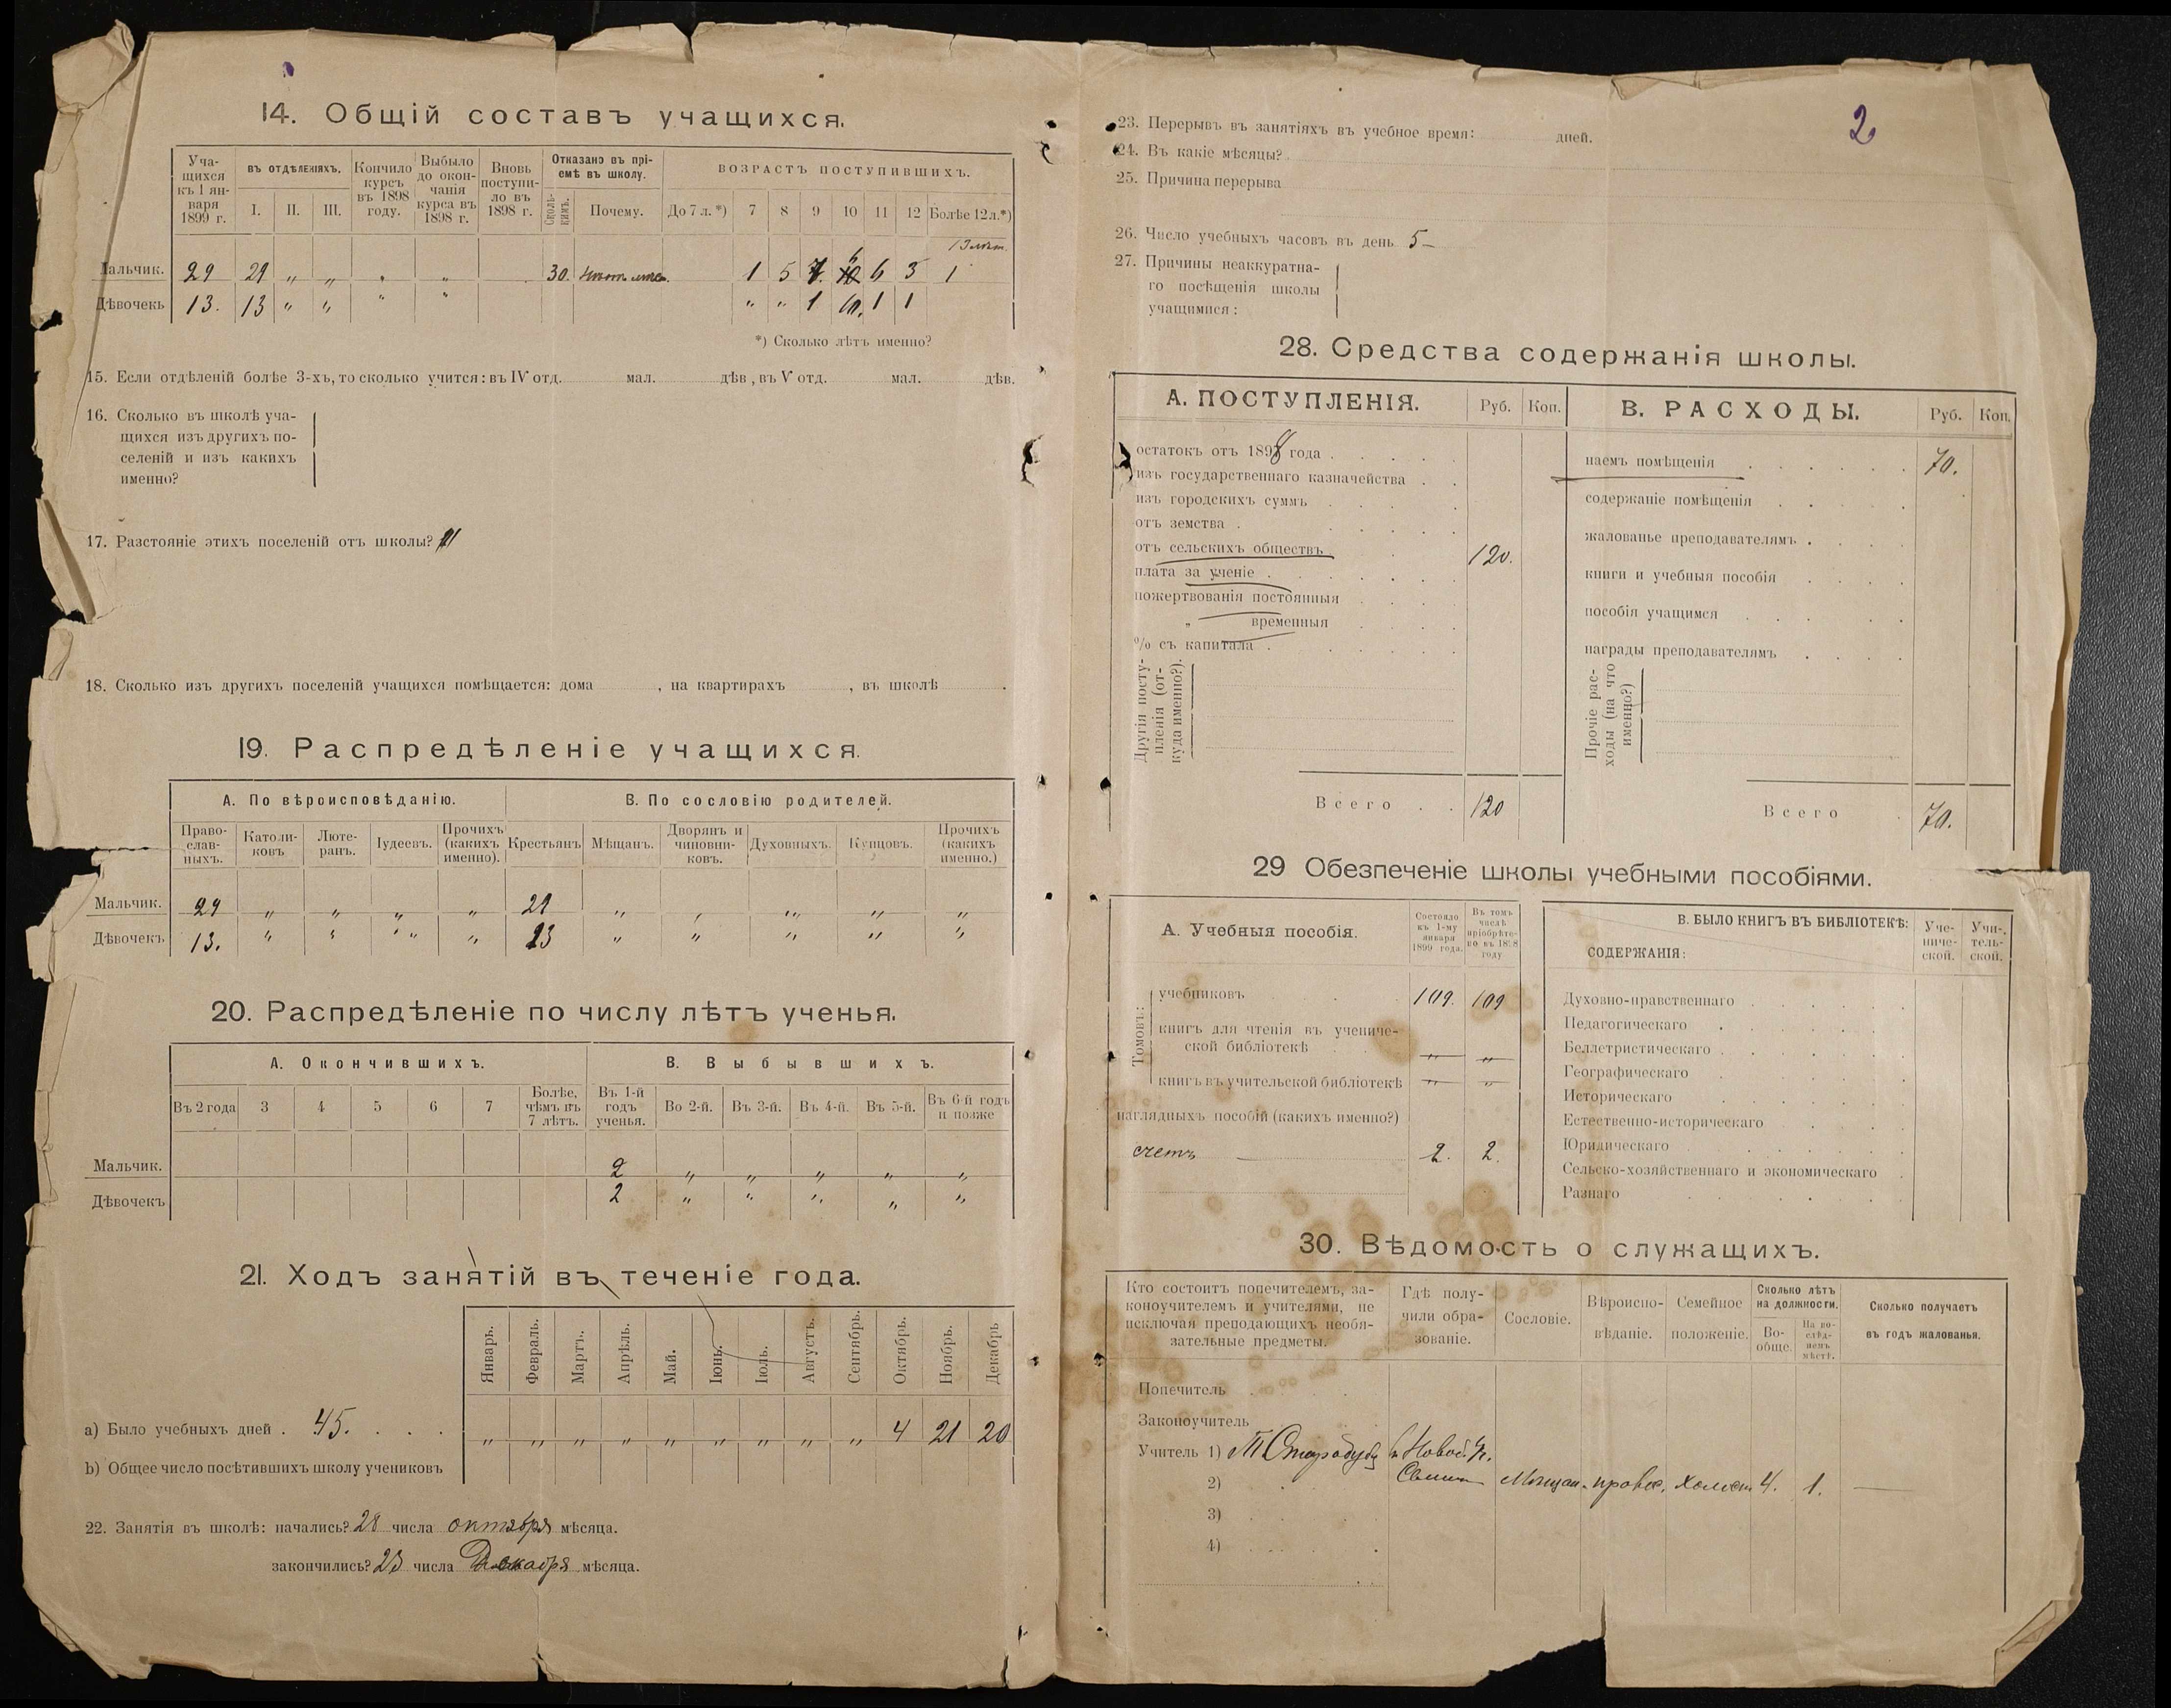 14. Общій составъ учащихся.
Учащихся къ 1 января 1899 г.
въ отдѣленіяхъ.
I. II. III.
Кончило курсъ въ 1898 году.
Выбыло до окончанія курса въ 1898 г.
Вновь поступило въ 1898 г.
Отказано въ пріемѣ въ школу.
Сколькимъ. Почему.
ВОЗРАСТЪ ПОСТУПИВШИХЪ.
До 7 л.*) 7 8 9 10 11 12 Болѣе 12 л.*)
Мальчик. 29 29 „ „ „ „ 30. 1 5 6 6 3 1
Дѣвочекъ 13. 13 „ „ „ „ „ „ 1 10. 1 1
*) Сколько лѣтъ именно?
15. Если отдѣленій болѣе 3-хъ, то сколько учится: въ IV отд. мал. дѣв., въ V отд. мал. дѣв.
16. Сколько въ школѣ уча-
щихся изъ другихъ по-
селеній и изъ какихъ
именно?
17. Разстояніе этихъ поселеній отъ школы?
18. Сколько изъ другихъ поселеній учащихся помѣщается: дома , на квартирахъ , въ школѣ .
19. Распредѣленіе учащихся.
А. По вѣроисповѣданію. В. По сословію родителей.
Православныхъ. Католиковъ Лютеранъ. Іудеевъ. Прочихъ (какихъ именно). Крестьянъ Мѣщанъ. Дворянъ и чиновниковъ. Духовныхъ. Купцовъ. Прочихъ (какихъ именно.)
Мальчик. 29 „ „ „ „ 29 „ „ „ „ „
Дѣвочекъ 13. „ „ „ „ 13 „ „ „ „ „
20. Распредѣленіе по числу лѣтъ ученья.
А. Окончившихъ. В. Выбывшихъ.
Въ 2 года 3 4 5 6 7 Болѣе, чѣмъ въ 7 лѣтъ. Въ 1-й годъ ученья. Во 2-й. Въ 3-й. Въ 4-й. Въ 5-й. Въ 6-й годъ и позже
Мальчик. 2 „ „ „ „ „
Дѣвочекъ 2 „ „ „ „ „
21. Ходъ занятій въ теченіе года.
Январь. Февраль. Мартъ. Апрѣль. Май. Іюнь. Іюль. Августъ. Сентябрь. Октябрь. Ноябрь. Декабрь
a) Было учебныхъ дней . 45. „ „ „ „ „ „ „ „ „ 4 21 20
b) Общее число посѣтившихъ школу учениковъ
22. Занятія въ школѣ: начались? 28 числа октября мѣсяца.
закончились? 23 числа Декабря мѣсяца.
2
23. Перерывъ въ занятіяхъ въ учебное время: дней.
24. Въ какіе мѣсяцы?
25. Причина перерыва
26. Число учебныхъ часовъ въ день 5–
27. Причины неаккуратна-
го посѣщенія школы
учащимися:
28. Средства содержанія школы.
А. ПОСТУПЛЕНІЯ. Руб. Коп. В. РАСХОДЫ. Руб. Коп.
остатокъ отъ 1898 года
изъ государственнаго казначейства
изъ городскихъ суммъ
отъ земства
отъ сельскихъ обществъ 120.
плата за ученіе
пожертвованія постоянныя
„ временныя
% съ капитала
Другія поступленія (откуда именно?).
Всего 120
наемъ помѣщенія 70.
содержаніе помѣщенія
жалованье преподавателямъ
книги и учебныя пособія
пособія учащимся
награды преподавателямъ
Прочіе расходы (на что именно?)
Всего 70.
29 Обезпеченіе школы учебными пособіями.
А. Учебныя пособія. Состояло къ 1-му января 1899 года. Въ томъ числѣ пріобрѣтено въ 1898 году
Томовъ:
учебниковъ 109. 109
книгъ для чтенія въ учениче-
ской библіотекѣ „ „
книгъ въ учительской библіотекѣ „ „
наглядныхъ пособій (какихъ именно?)
счетъ 2. 2.
В. БЫЛО КНИГЪ ВЪ БИБЛІОТЕКѢ: Ученической. Учительской.
СОДЕРЖАНІЯ:
Духовно-нравственнаго
Педагогическаго
Беллетристическаго
Географическаго
Историческаго
Естественно-историческаго
Юридическаго
Сельско-хозяйственнаго и экономическаго
Разнаго
30. Вѣдомость о служащихъ.
Кто состоитъ попечителемъ, за-
коноучителемъ и учителями, не
исключая преподающихъ необя-
зательные предметы.
Гдѣ получили образованіе.
Сословіе.
Вѣроисповѣданіе.
Семейное положеніе.
Сколько лѣтъ на должности.
Вообще. На послѣднемъ мѣстѣ.
Сколько получаетъ
въ годъ жалованья.
Попечитель
Законоучитель
Учитель 1)
2) Мѣщан. правос. холост. 4. 1. —
3)
4)